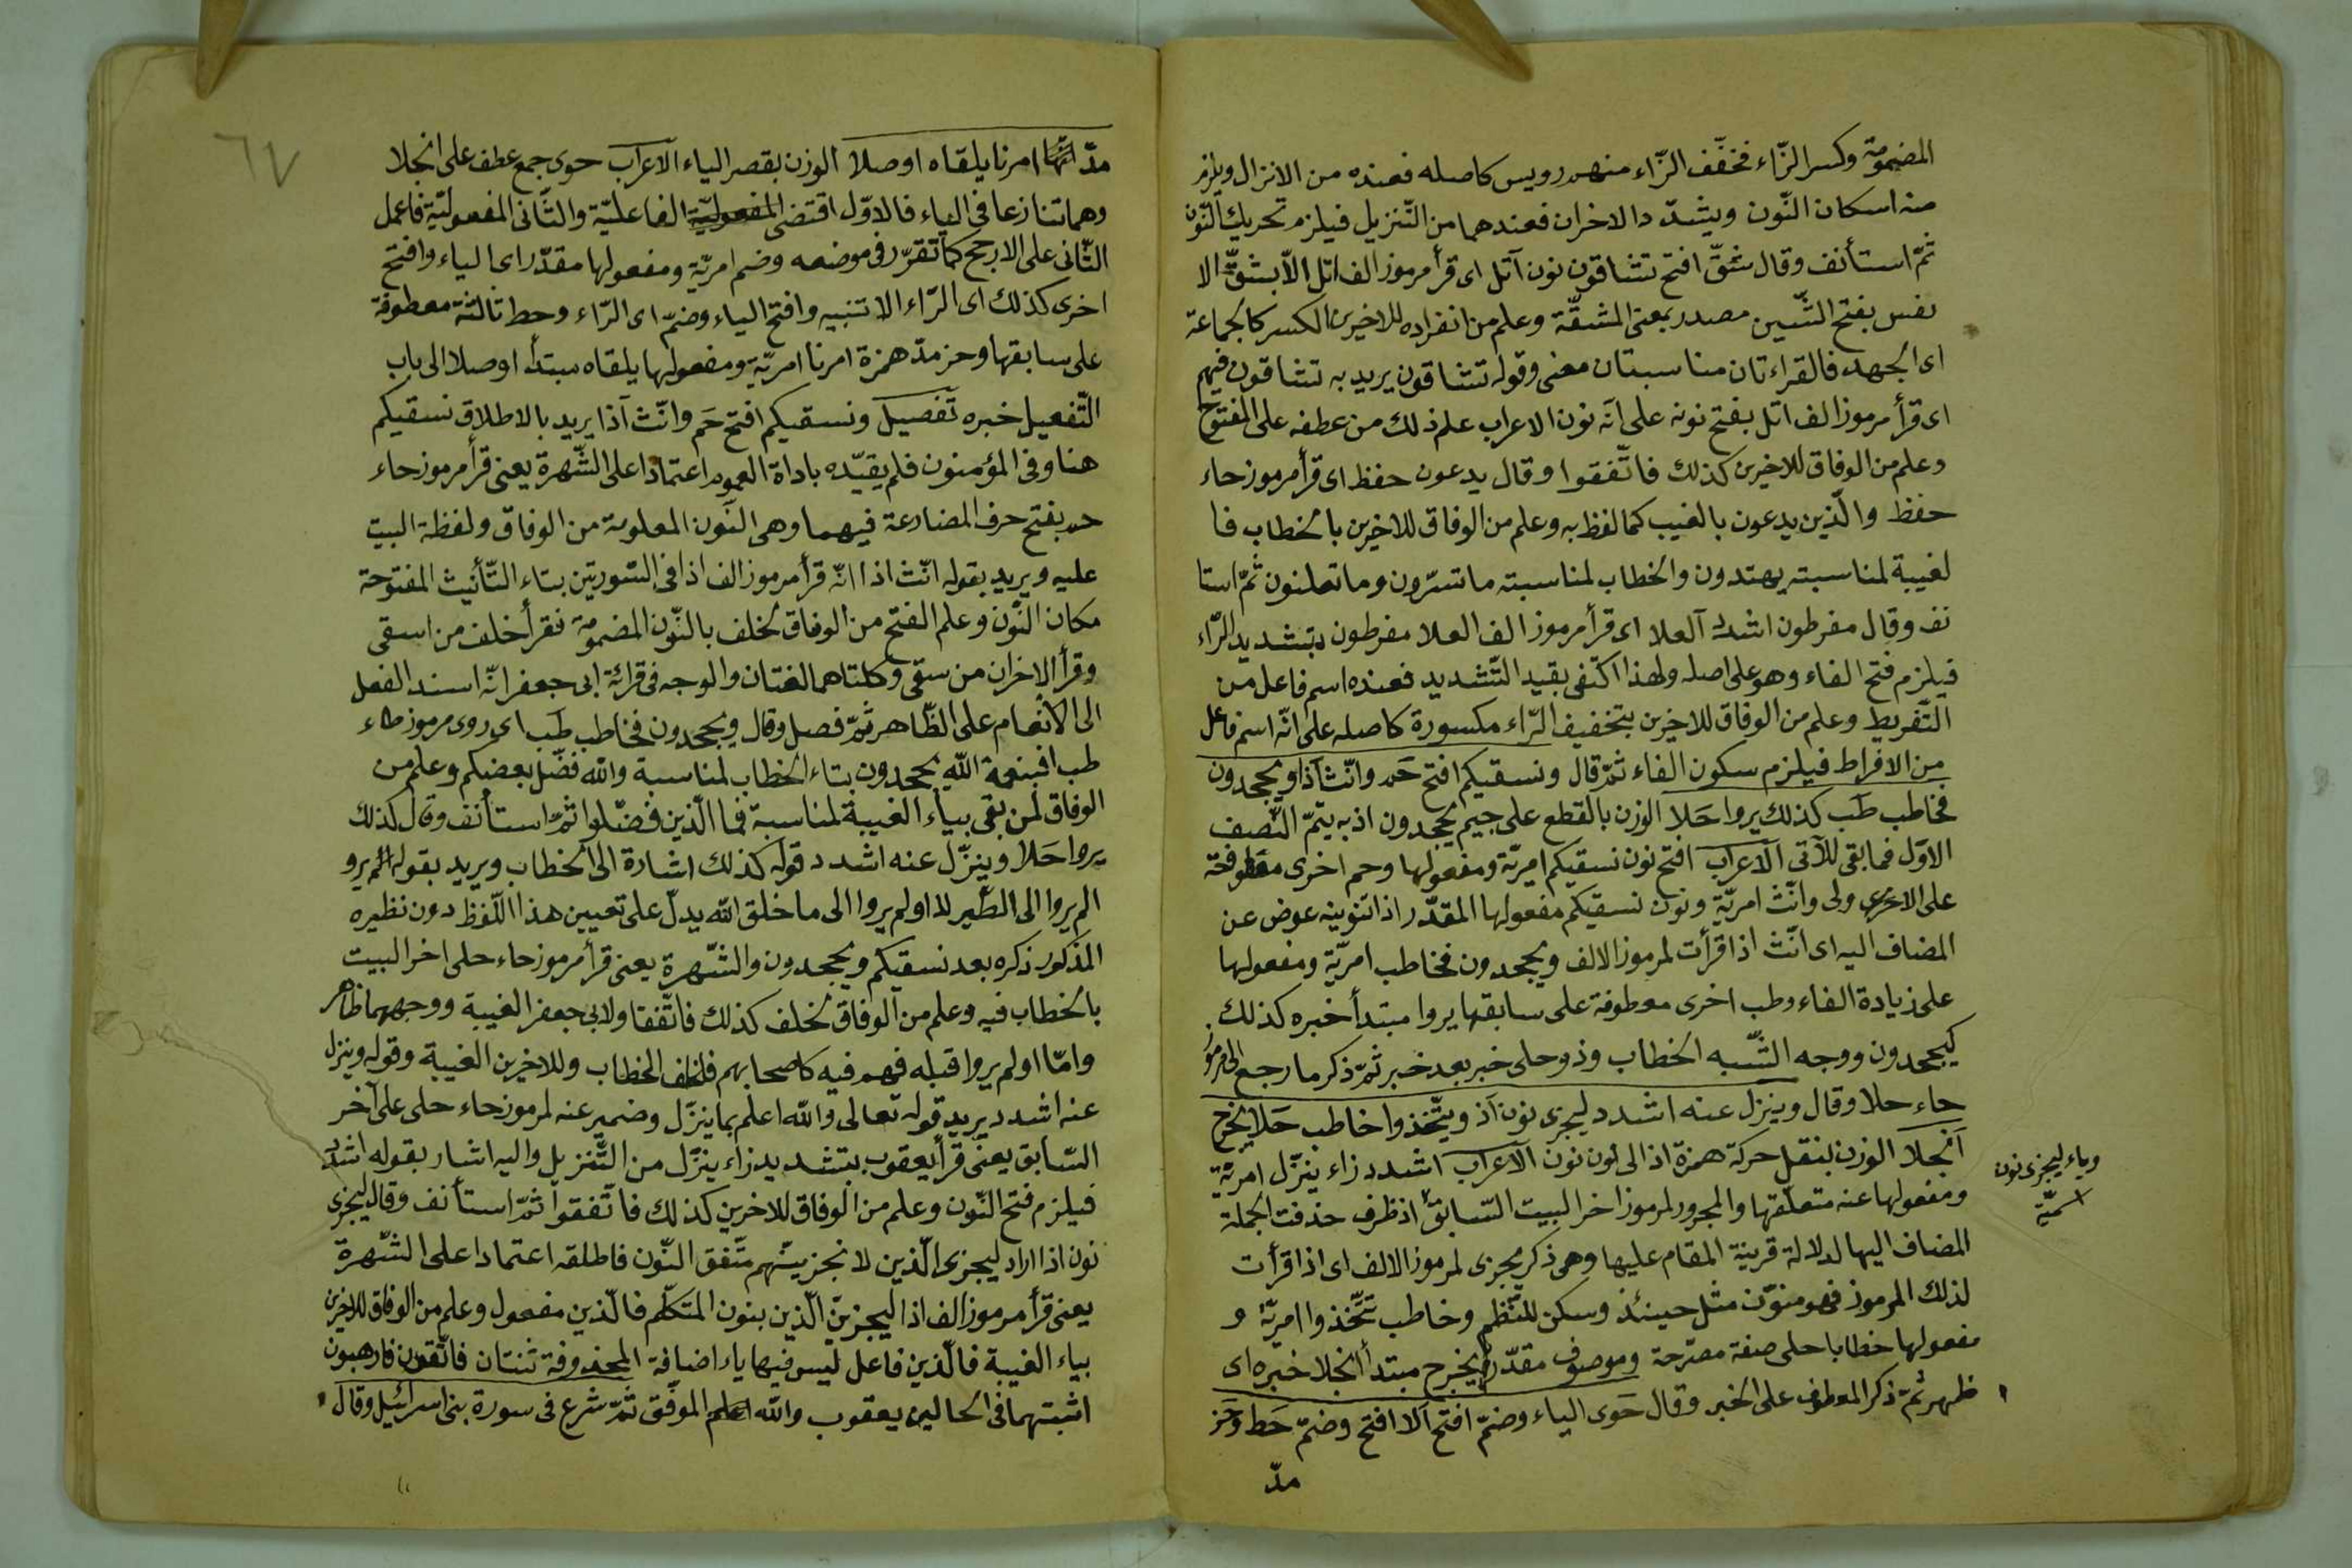 المضمومة وكسر الزّاء فخفّف الزّاء منهم رويس كاصله فعنده من الانزال ويلزم
منه اسكان النّون ويشدّد الاخران فعندهما من التّنزيل فيلزم تحريك النّون
ثمّ استأنف وقال شقّ افتح تشاقون نون آتل اى قرأ مرموز الف اتل الاّ بشقّ الا
نفس بفتح الشّين مصدر بمعنى المشقّة وعلم من انفراده للاخيرين الكسر كالجماعة
اى الجهد فالقراءتان مناسبتان معنى وقوله تشاقون يريد به تشاقون فيهم
اى قرأ مرموز الف اتل بفتح نونه على انّه نون الاعراب علم ذلك من عطفه على المفتوح
وعلم من الوفاق للاخرين كذلك فاتّفقوا وقال يدعون حفظ اى قرأ مرموز حاء
حفظ والّذين يدعون بالغيب كما لفظ به وعلم من الوفاق للاخرين بالخطاب فا
لغيبة لمناسبته يهتدون والخطاب لمناسبته ما تسرّون وما تعلنون ثمّ استا
نف وقال مفرطون اشدد آلعلا اى قرأ مرموز الف العلا مفرطون بتشديد الرّاء
فيلزم فتح الفاء وهو على اصله ولهذا اكتفى بقيد التّشديد فعنده اسم فاعل من
التّفريط وعلم من الوفاق للاخرين بتخفيف الرّاء مكسورة كاصله على انّه اسم فاعل
من الافراط فيلزم سكون الفاء ثمّ قال ونسقيكم افتح حَم وانّث آذا ويجحدون
فخاطب طَب كذلك يروا حَلا الوزن بالقطع على جيم يجحدون اذ به يتمّ النّصف
الاوّل فما بقى للآتى الآعراب افتح نون نسقيكم امريّة ومفعولها وحم اخرى معطوفة
على الاخرى ولى وانّث امريّة ونون نسقيكم مفعولها المقدّر اذا تنوينه عوض عن
المضاف اليه اى انّث اذا قرأت لمرموز الالف ويجحدون فخاطب امريّة ومفعولها
على زيادة الفاء وطب اخرى معطوفة على سابقها يروا مبتدأ خبره كذلك
كيجحدون ووجه الشّبه الخطاب وذو حلى خبر بعد خبر ثمّ ذكر ما رجع الى مرموز
حاء حلا وقال وينزل عنه اشدد ليجزى نون آذ ويتّخذوا خاطب حَلا يخرج
آنجلا الوزن بنقل حركة همزة اذ الى نون نون الآعراب اشدد زاء ينزّل امريّة
ومفعولها عنه متعلّقها والمجرور لمرموز اخر البيت السّابق اذ ظرف حذفت الجملة
المضاف اليها لدلالة قرينة المقام عليها وهى ذكر يجزى لمرموز الالف اى اذ اقرأت
لذلك المرموز فهو منوّن مثل حينئذ وسكن للنّظم وخاطب تتّخذوا امريّة و
مفعولها خطابا حلى صفة مصرّحة وموصوف مقدّر يخرج مبتدأ انجلا خبره اى
ظهر ثمّ ذكر المعطوف على الخبر وقال حَوى الياء وضمّ افتح آلا افتح وضمّ حَط وحَز
مدّ
وياء ليجزى نون
اسميّة
٦٧
مدّ امرنا يلقاه اوصلا الوزن بقصر الياء الآعراب حوى جمع عطف على انجلا
وهما تنازعا فى الياء فالاوّل اقتضى المفعوليّة الفاعليّة والثّانى المفعوليّة فاعمل
الثّانى على الارجح كما تقرّر فى موضعه وضم امريّة ومفعولها مقدّر اى الياء وافتح
اخرى كذلك اى الرّاء الا تنبيه وافتح الياء وضمّ اى الرّاء وحط ثالثة معطوفة
على سابقها وحز مدّ همزة امرنا امريّة ومفعولها يلقاه مبتدأ اوصلا الى باب
التّفعيل خبره تفصيل ونسقيكم افتح حَم وانّث آذا يريد بالاطلاق نسقيكم
هنا وفى المؤمنون فلم يقيّده باداة العموم اعتمادا على الشّهرة يعنى قرأ مرموز حاء
حم بفتح حرف المضارعة فيهما وهى النّون المعلومة من الوفاق ولفظة البيت
عليه ويريد بقوله انّث اذا انّه قرأ مرموز الف اذا فى السّورتين بتاء التّأنيث المفتوحة
مكان النّون وعلم الفتح من الوفاق لخلف بالنّون المضمومة فقرأ خلف من اسقى
وقرأ الاخران من سقى وكلتاهما لغتان والوجه فى قرائة ابى جعفر انّه اسند الفعل
الى الانعام على الظّاهر ثمّ فصل وقال ويجحدون فخاطب طَب اى روى مرموز طاء
طب افبنعمة اللّه يجحدون بتاء الخطاب لمناسبة واللّه فضّل بعضكم وعلم من
الوفاق لمن بقى بياء الغيبة لمناسبة فما الّذين فضّلوا ثمّ استأنف وقال كذلك
يروا حَلا وينزّل عنه اشدد قوله كذلك اشارة الى الخطاب ويريد بقوله الم يرو
الم يروا الى الطّير لا اولم يروا الى ما خلق اللّه يدلّ على تعيين هذا اللّفظ دون نظيره
المذكور ذكره بعد نسقيكم ويجحدون والشّهرة يعنى قرأ مرموز حاء حلى اخر البيت
بالخطاب فيه وعلم من الوفاق لخلف كذلك فاتّفقا ولابى جعفر الغيبة ووجههما ظاهر
وامّا اولم يروا قبله فهم فيه كاصحابهم فلخلف الخطاب وللاخرين الغيبة وقوله وينزل
عنه اشدد يريد قوله تعالى واللّه اعلم بما ينزّل وضمير عنه لمرموز حاء حلى على آخر
السّابق يعنى قرأ يعقوب بتشديد زاء ينزّل من التّنزيل واليه اشار بقوله اشدد
فيلزم فتح النّون وعلم من الوفاق للاخرين كذلك فاتّفقوا ثمّ استأنف وقال ليجزى
نون اذا اراد ليجزى الّذين لا نجزينّهم متّفق النّون فاطلقه اعتمادا على الشّهرة
يعنى قرأ مرموز الف اذا ليجزينّ الّذين بنون المتكلّم فالّذين مفعول وعلم من الوفاق للاخرين
بياء الغيبة فالّذين فاعل ليس فيها ياء اضافة المحذوفة ثنتان فاتّقون فارهبون
اثبتهما فى الحالين يعقوب واللّه الموفّق ثمّ شرع فى سورة بنى اسرائيل وقال